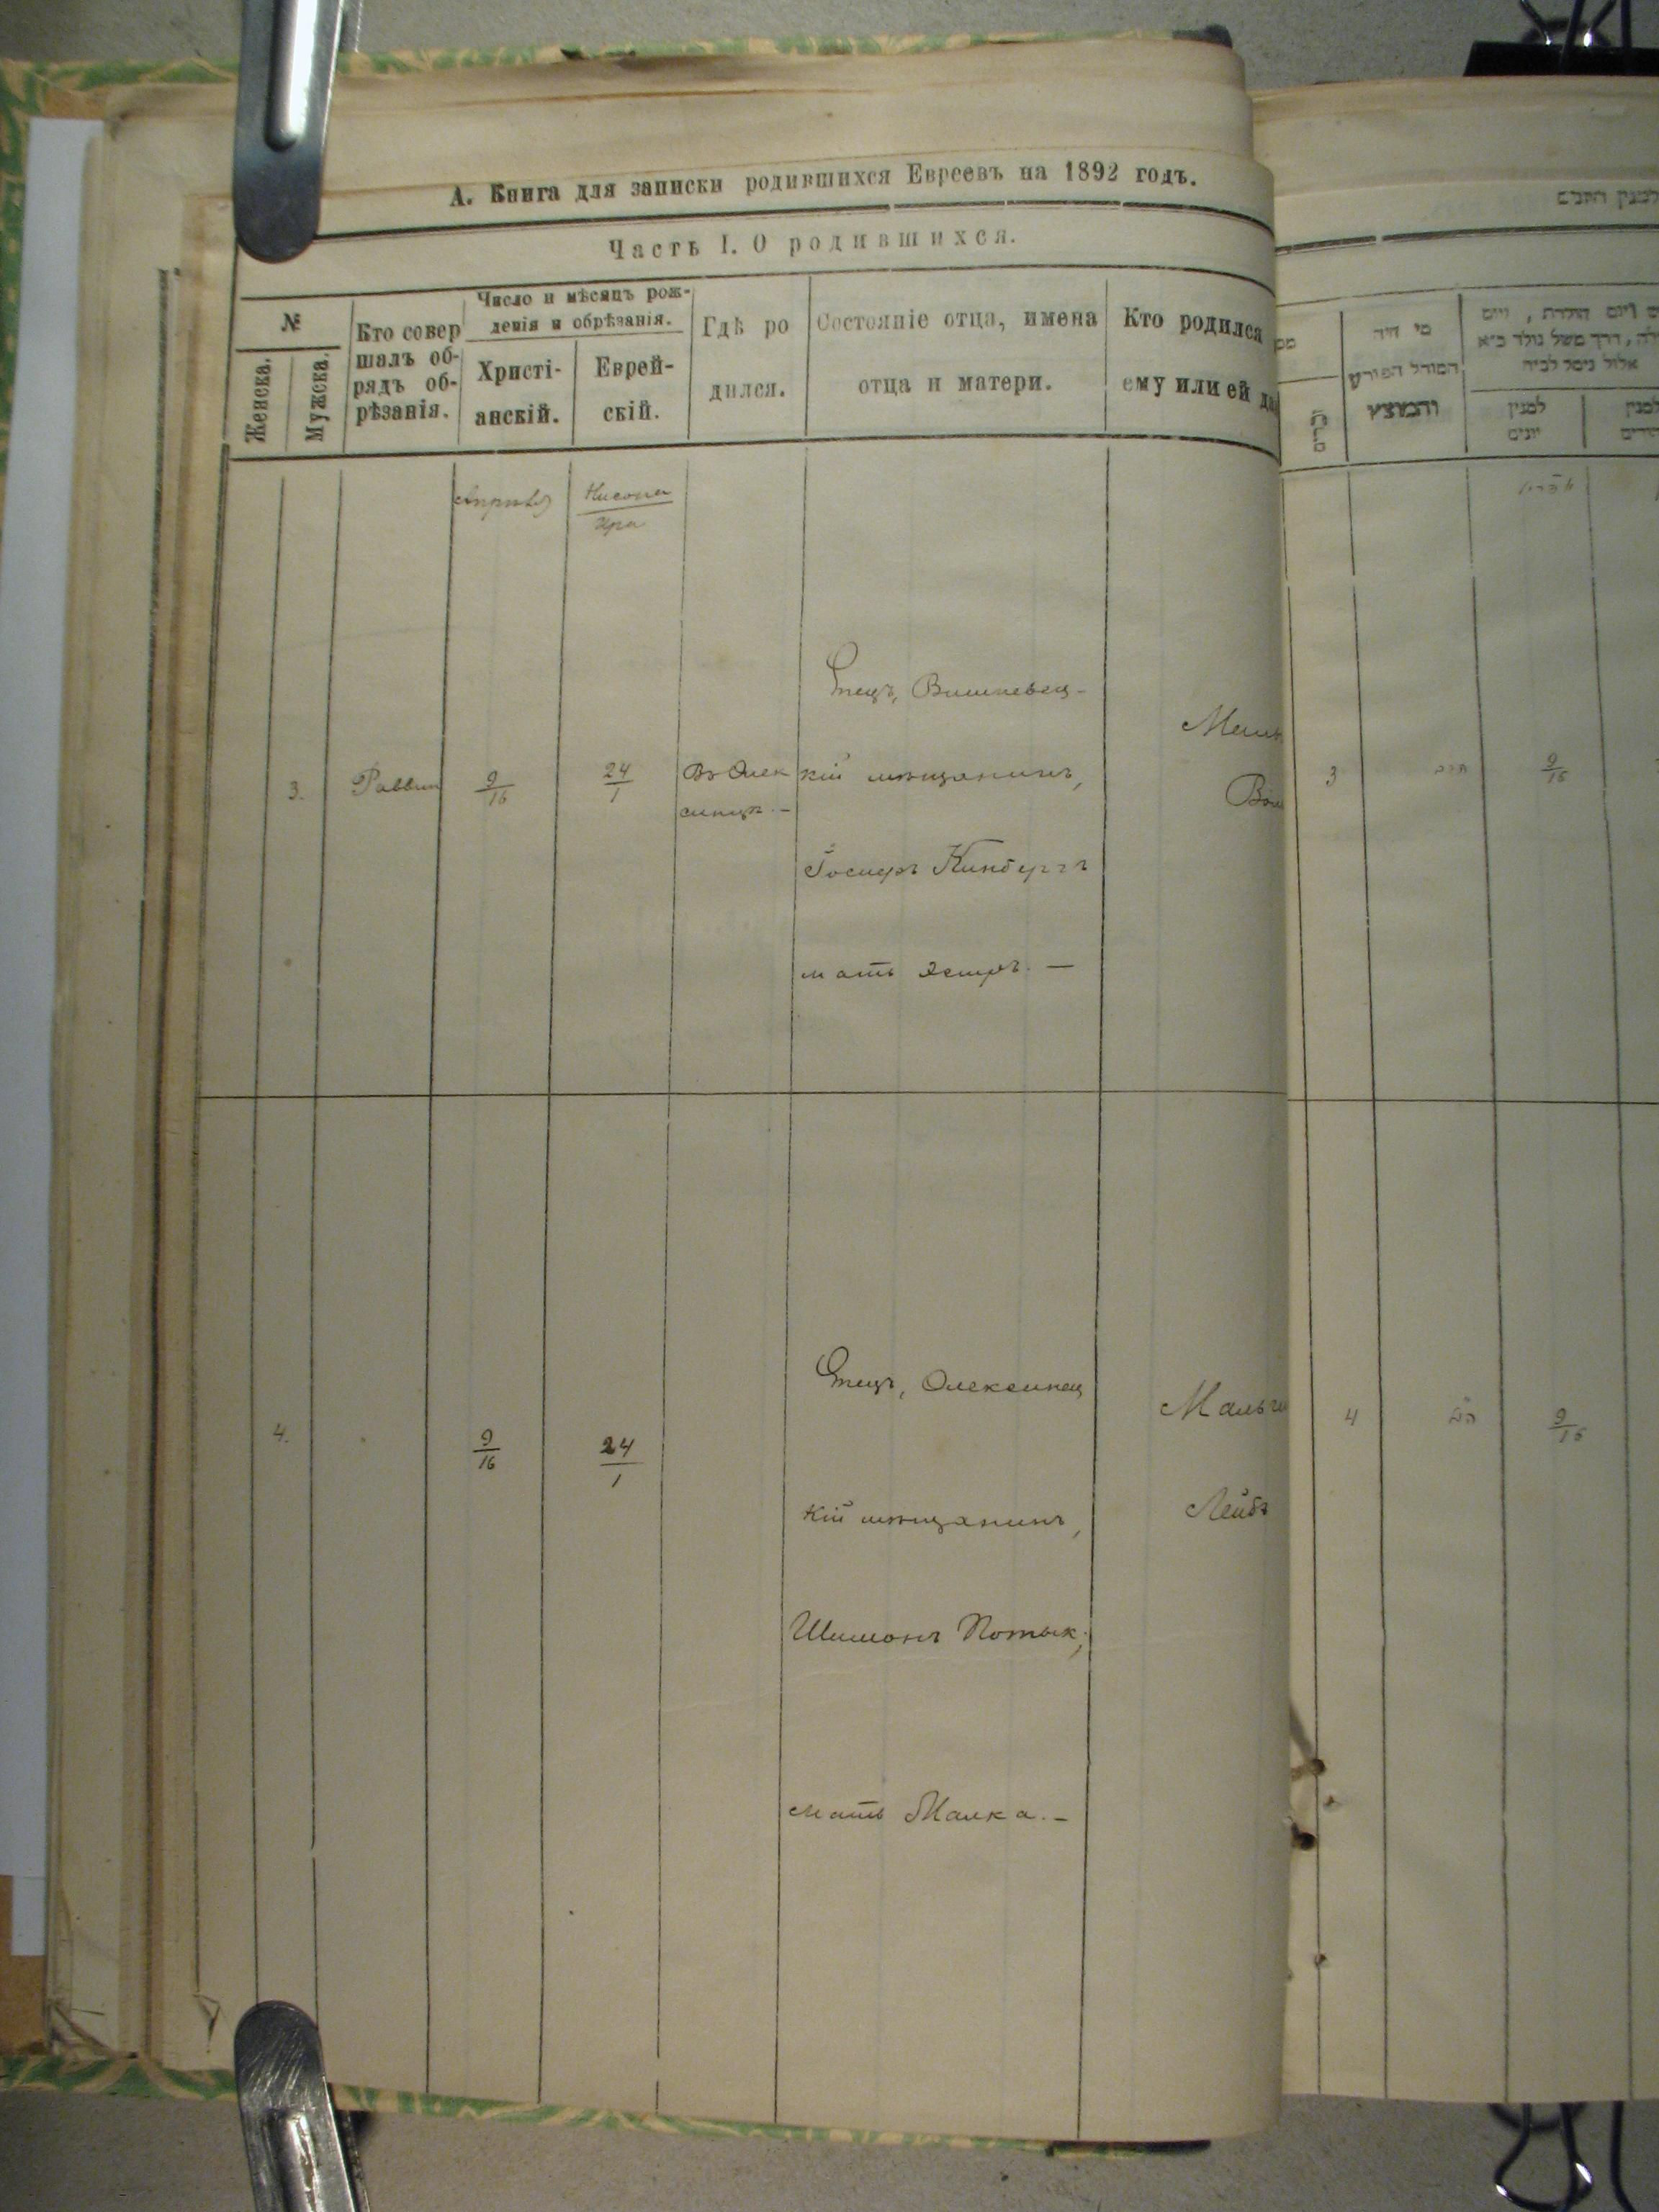 А. Книга для записки родившихся Евреевъ на 1892 годъ.
Часть I. О родившихся.
№
Женска.
Мужска.
Кто совер
шалъ об-
рядъ об-
рѣзанія.
Число и мѣсяцъ рож-
денія и обрѣзанія.
Христі-
анскій.
Еврей-
скій.
Гдѣ ро
дился.
Состояніе отца, имена
отца и матери.
Кто родился
ему или ей да
Апрѣль
Нисона
Ира
3.
Раввин
9
16
24
1
Въ Олек
синцѣ. –
Отецъ, Вишневец-
кій мѣщанинъ,
Іосифъ Кинбергъ
мать Эстеръ. —
4.
9
16
24
1
Отецъ, Олексинец
кій мѣщанинъ,
Шимонъ Потык;
мать Малка. –
Мальчи
Лейбъ
מי היה
המוהל הפורע
והמוצץ
למנין
יונים
3
9
16
4
9
16